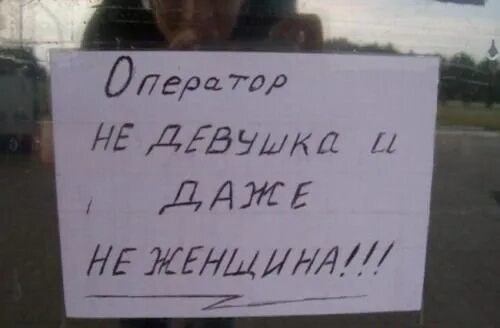 Оператор
НЕ ДЕВУШКА и
ДАЖЕ
НЕ ЖЕНЩИНА!!!